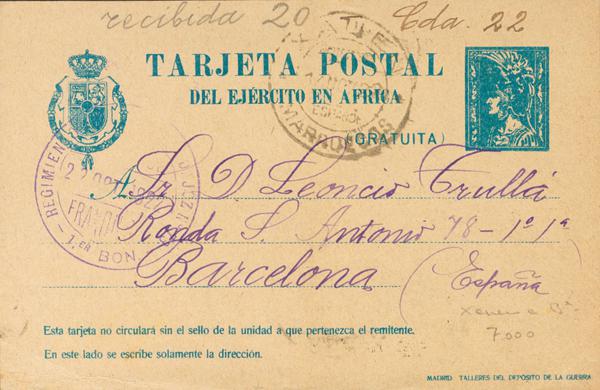 recibida 20
Cda. 22
TARJETA POSTAL
DEL EJÉRCITO EN AFRICA
(GRATUITA)
TETUAN
MARRUECOS
REGIMIEN
22 OCT
FRAN
1.ER BON
A Sr. D. Leoncio Trullá
Ronda S. Antonio 78-1º 1ª
Barcelona
(España)
7000
Esta tarjeta no circulará sin el sello de la unidad a que pertenezca el remitente.
En este lado se escribe solamente la dirección.
MADRID. TALLERES DEL DEPÓSITO DE LA GUERRA